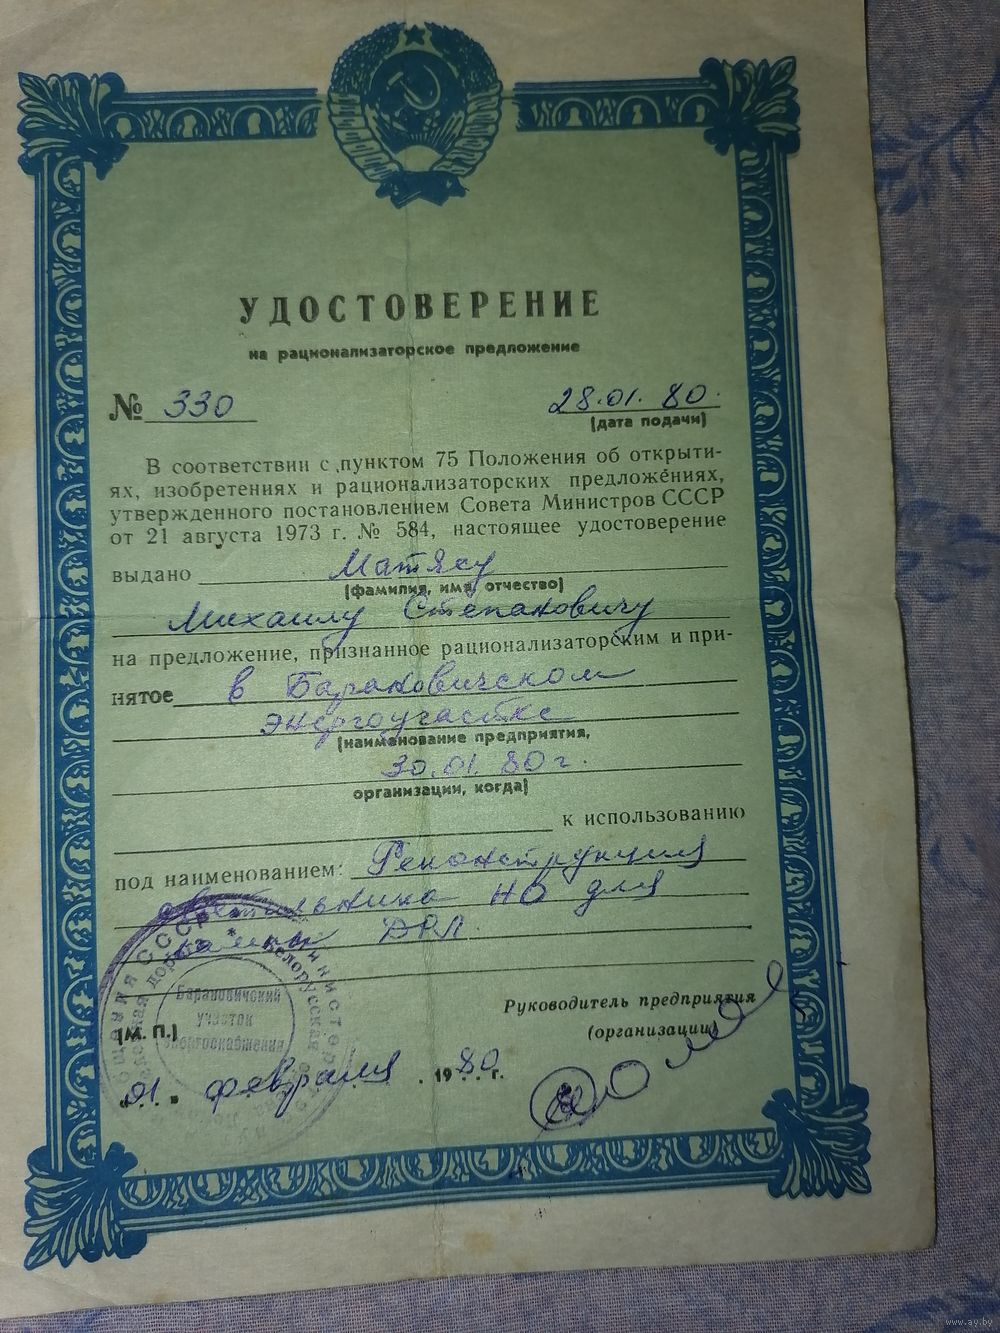 УДОСТОВЕРЕНИЕ
на рационализаторское предложение
№ 330 28.01.80.
(дата подачи)
В соответствии с пунктом 75 Положения об открыти-
ях, изобретениях и рационализаторских предложениях,
утвержденного постановлением Совета Министров СССР
от 21 августа 1973 г. № 584, настоящее удостоверение
выдано Матясу
(фамилия, имя, отчество)
Михаилу Степановичу
на предложение, признанное рационализаторским и при-
нятое в Барановичском
энергоучастке
(наименование предприятия,
30.01.80 г.
организации, когда)
к использованию
под наименованием: Реконструкция
светильника НО для
лампы ДРЛ
Руководитель предприятия
(организации)
Барановичский
участок
энергоснабжения
(М. П.)
"01" февраля 1980 г.
www.ay.by